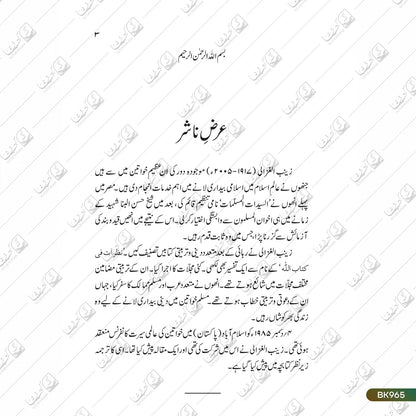 ۳
بسم اللہ الرحمٰن الرحیم
عرضِ ناشر
زینب الغزالی (۱۹۱۷-۲۰۰۵ء) موجودہ دور کی ان عظیم خواتین میں سے ہیں
جنھوں نے عالم اسلام میں اسلامی بیداری لانے میں اہم خدمات انجام دی ہیں۔ مصر میں
پہلے انھوں نے 'السیدات المسلمات' نامی تنظیم قائم کی، بعد میں شیخ حسن البنا شہید کے
زمانے میں ہی اخوان المسلمون سے وابستگی اختیار کرلی۔ اس کے نتیجے میں انھیں قید و بند کی
آزمائش سے گزرنا پڑا، جس میں وہ ثابت قدم رہیں۔
زینب الغزالی نے رہائی کے بعد متعدد دینی و تربیتی کتابیں تصنیف کیں۔ 'نظرات فی
کتاب اللہ' کے نام سے ایک تفسیر بھی لکھی۔ کئی مجلّات کا اجرا کیا۔ ان کے تربیتی مضامین
مختلف مجلّات میں شائع ہوتے تھے۔ انھوں نے متعدد عرب اور مسلم ممالک کا سفر کیا، جہاں
ان کے دعوتی و تربیتی خطاب ہوتے تھے۔ مسلم خواتین میں دینی بیداری لانے کے لیے وہ
زندگی بھر کوشاں رہیں۔
۴؍دسمبر ۱۹۸۵ء کو اسلام آباد (پاکستان) میں خواتین کی عالمی سیرت کانفرنس منعقد
ہوئی تھی۔ زینب الغزالی نے اس میں شرکت کی تھی اور ایک مقالہ پیش کیا تھا۔ اسی کا ترجمہ
زیر نظر کتابچہ میں پیش کیا گیا ہے۔
BK965